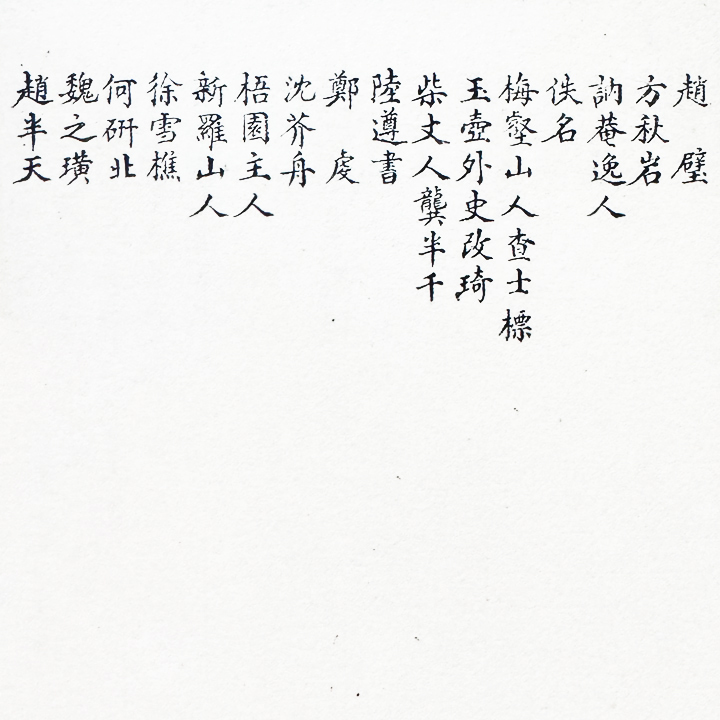 趙璧
方秋岩
訥菴逸人
佚名
梅壑山人查士標
玉壺外史改琦
柴丈人龔半千
陸遵書
鄭虔
沈芥舟
梧園主人
新羅山人
徐雪樵
何研北
魏之璜
趙半天